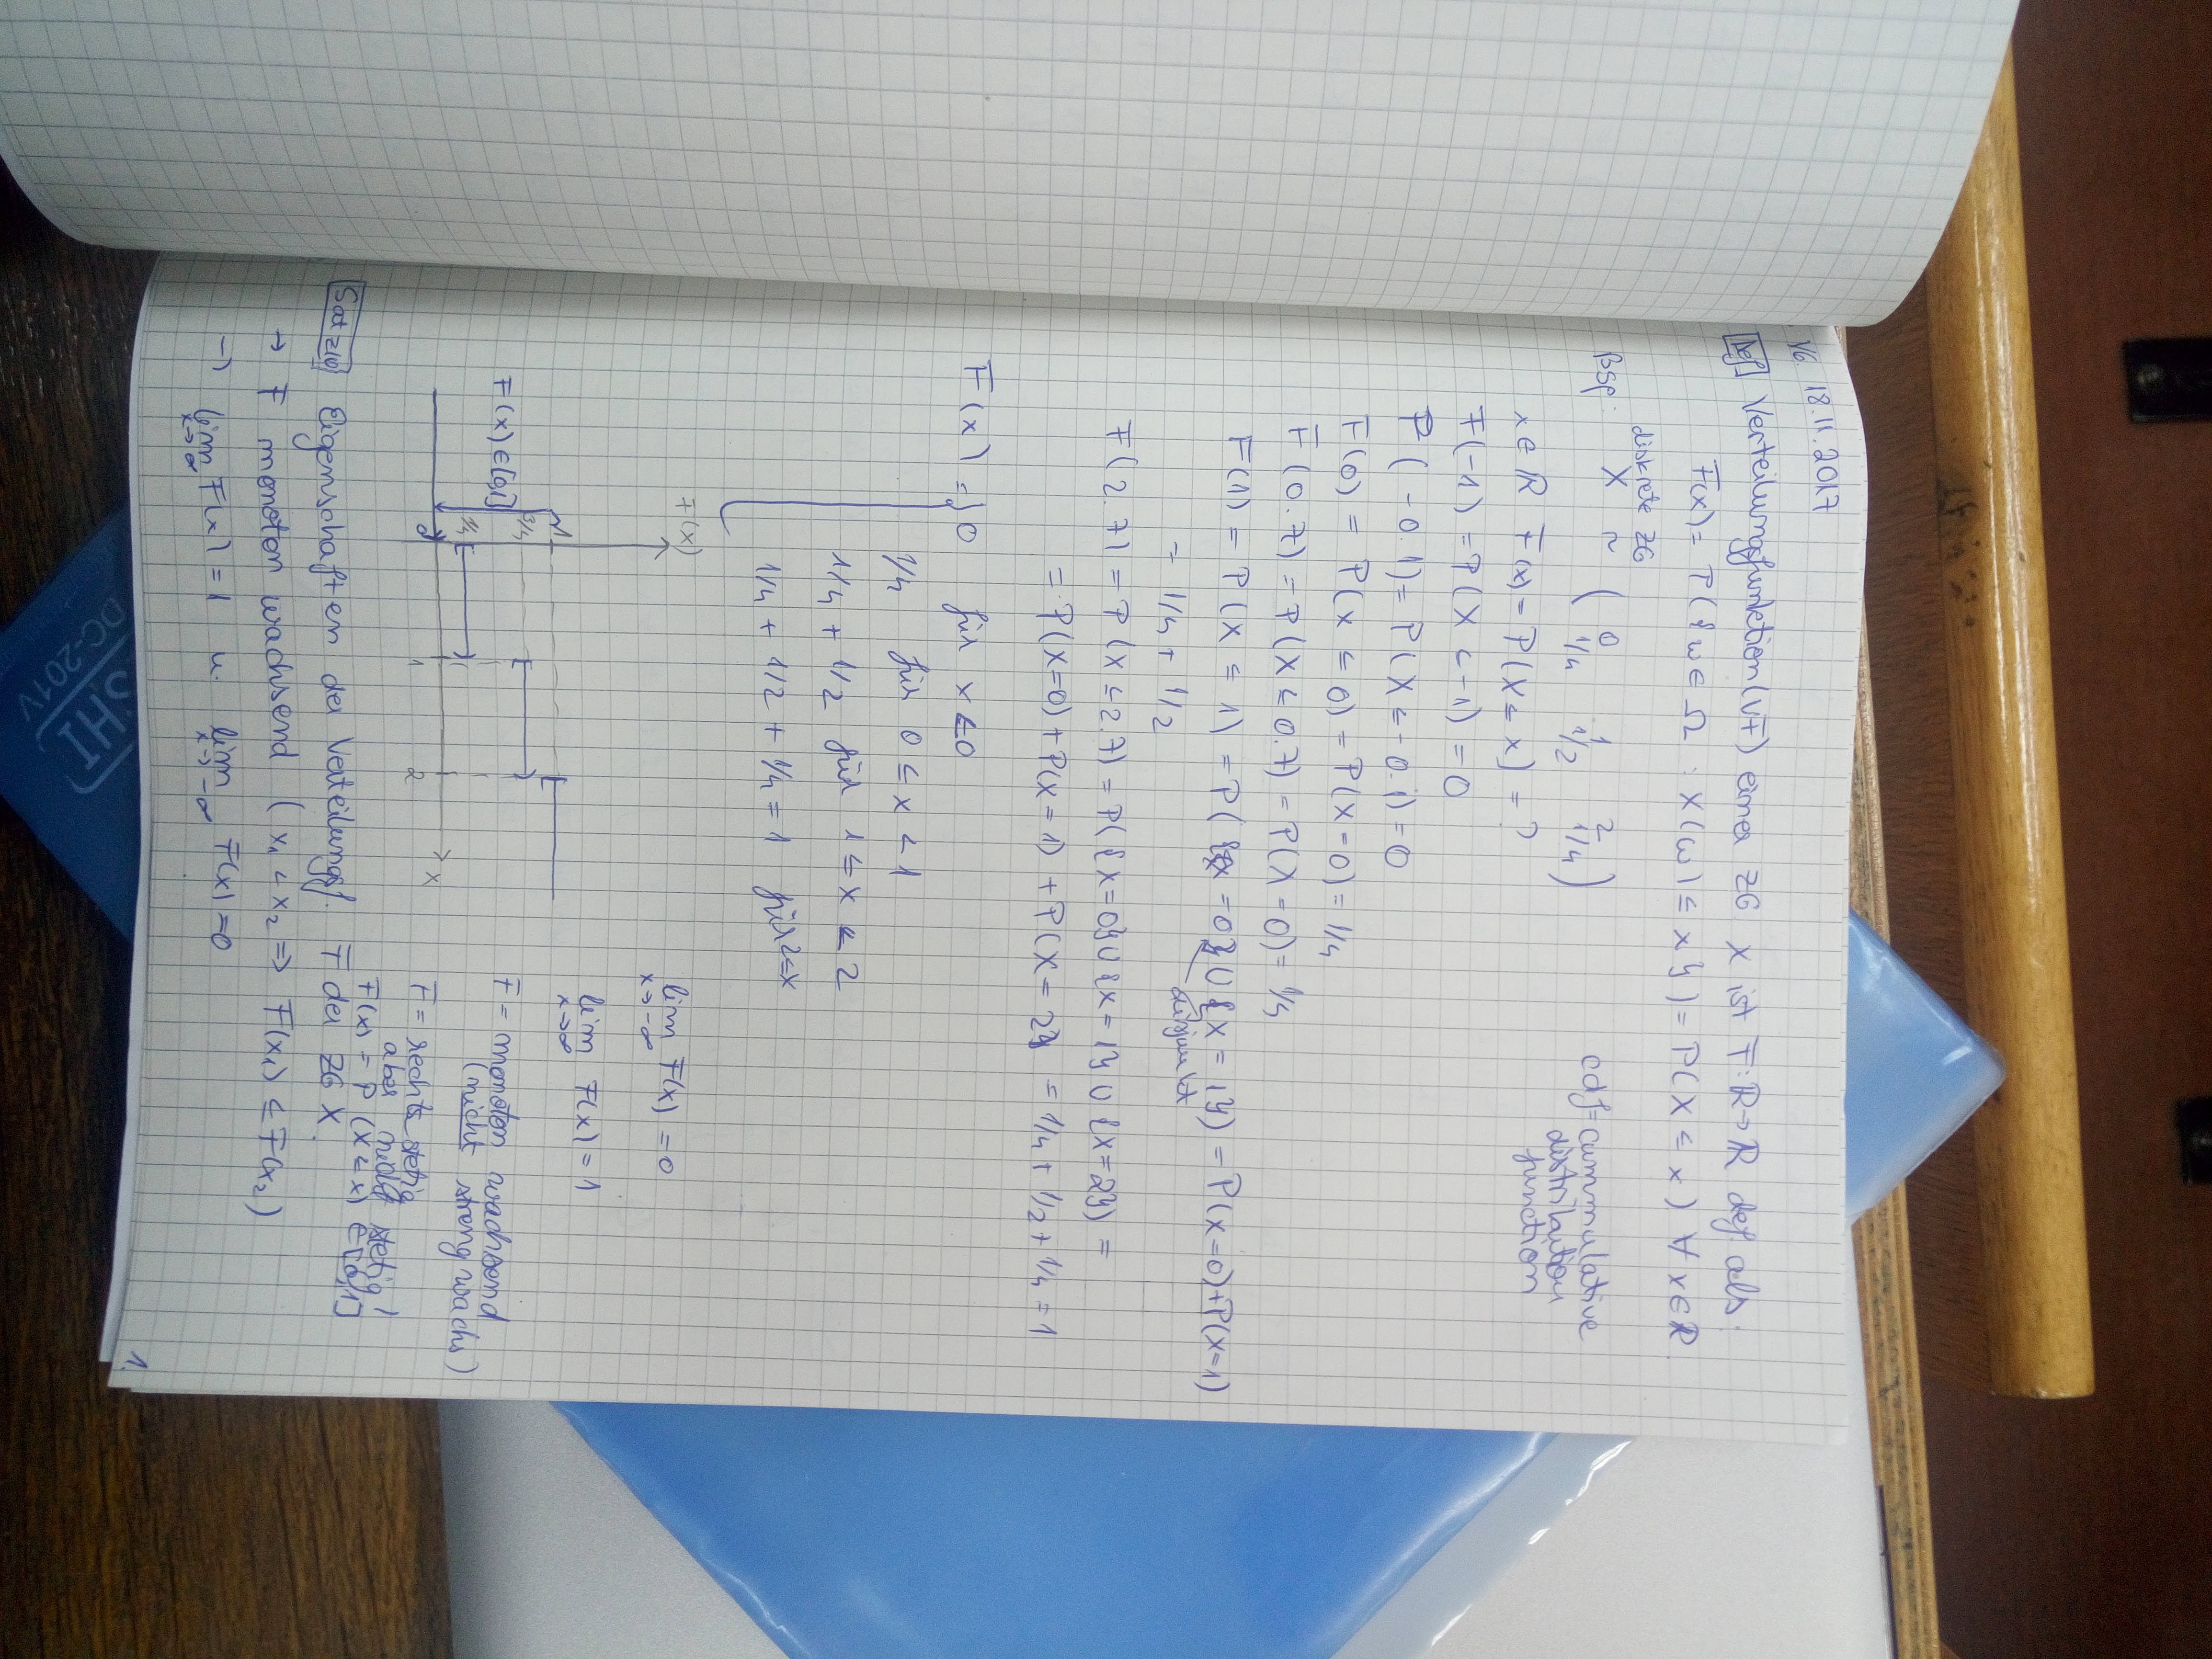 V6. 18.11.2017
Def Verteilungsfunktion (VF) einer ZG X ist F: ℝ→ℝ def. als:
F(x) = P({ω ∈ Ω : X(ω) ≤ x}) = P(X ≤ x) ∀ x ∈ ℝ.
diskrete ZG
Bsp: X ~ ( 0 1 2
1/4 1/2 1/4 )
cdf = cummulative
distribution
function
x ∈ ℝ F(x) = P(X ≤ x] = ?
F(-1) = P(X < -1) = 0
P(-0.1) = P(X ≤ -0.1) = 0
F(0) = P(X ≤ 0) = P(X = 0) = 1/4
F(0.7) = P(X ≤ 0.7) = P(X = 0) = 1/4
F(1) = P(X ≤ 1) = P({X = 0} ∪ {X = 1}) = P(X=0) + P(X=1)
disjunkt
= 1/4 + 1/2
F(2.7) = P(X ≤ 2.7) = P({X=0} ∪ {X=1} ∪ {X=2}) =
= P(X=0) + P(X=1) + P(X=2} = 1/4 + 1/2 + 1/4 = 1
F(x) = { 0 für x < 0
1/4 für 0 ≤ x < 1
1/4 + 1/2 für 1 ≤ x < 2
1/4 + 1/2 + 1/4 = 1 für 2 ≤ x
F(x)
lim F(x) = 0
x → -∞
lim F(x) = 1
x → ∞
1
3/4
F(x) ∈ [0,1]
1/4
0 1 2 x
F = monoton wachsend
(nicht streng wachs)
F = rechts stetig
aber nicht stetig!
F(x) = P(X ≤ x) ∈ [0,1]
Eigenschaften der Verteilungsf. F der ZG X.
→ F monoton wachsend (x₁ < x₂ ⇒ F(x₁) ≤ F(x₂))
→ lim F(x) = 1 u. lim F(x) = 0
x → ∞ x → -∞
1.
SHI
DC-201V